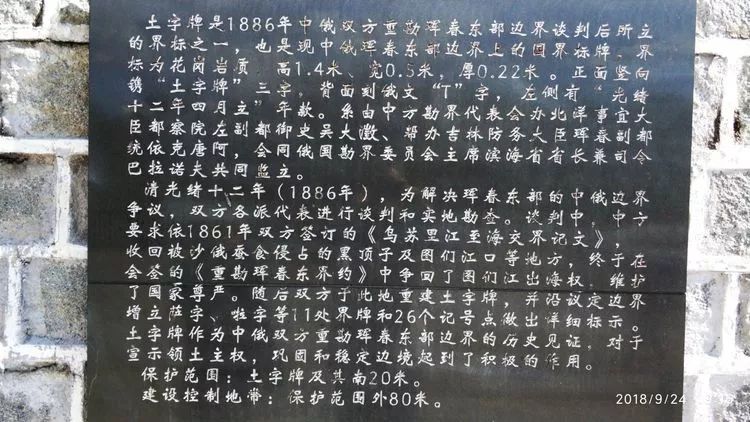 土字牌是1886年中俄双方重勘珲春东部边界谈判后所立
的界标之一,也是现中俄珲春东部边界上的国界标牌。界
标为花岗岩质,高1.4米、宽0.5米,厚0.22长。正面竖向
镌“土字牌”三字,背面刻俄文“T”字,左侧有“光绪
十二年四月立”年款。系由中方勘界代表会办北洋事宜大
臣都察院左副都御史吴大澂、帮办吉林防务大臣珲春副都
统依克唐阿,会同俄国勘界委员会主席滨海省省长兼司令
巴拉诺夫共同监立。
清光绪十二年(1886年),为解决珲春东部的中俄边界
争议,双方各派代表进行谈判和实地勘查。谈判中,中方
要求依1861年双方签订的《乌苏里江至海交界记文》,
收回被沙俄蚕食侵占的黑顶子及图们江口等地方,终于在
会签的《重勘珲春东界约》中争回了图们江出海权,维护
了国家尊严。随后双方于此地重建土字牌,并沿议定边界
增立萨字、啦字等11处界牌和26个记号点做出详细标示。
土字牌作为中俄双方重勘珲春东部边界的历史见证,对于
宣示领土主权,巩固和稳定边境起到了积极的作用。
保护范围:土字牌及其南20米。
建设控制地带:保护范围外80米。
2018/9/24